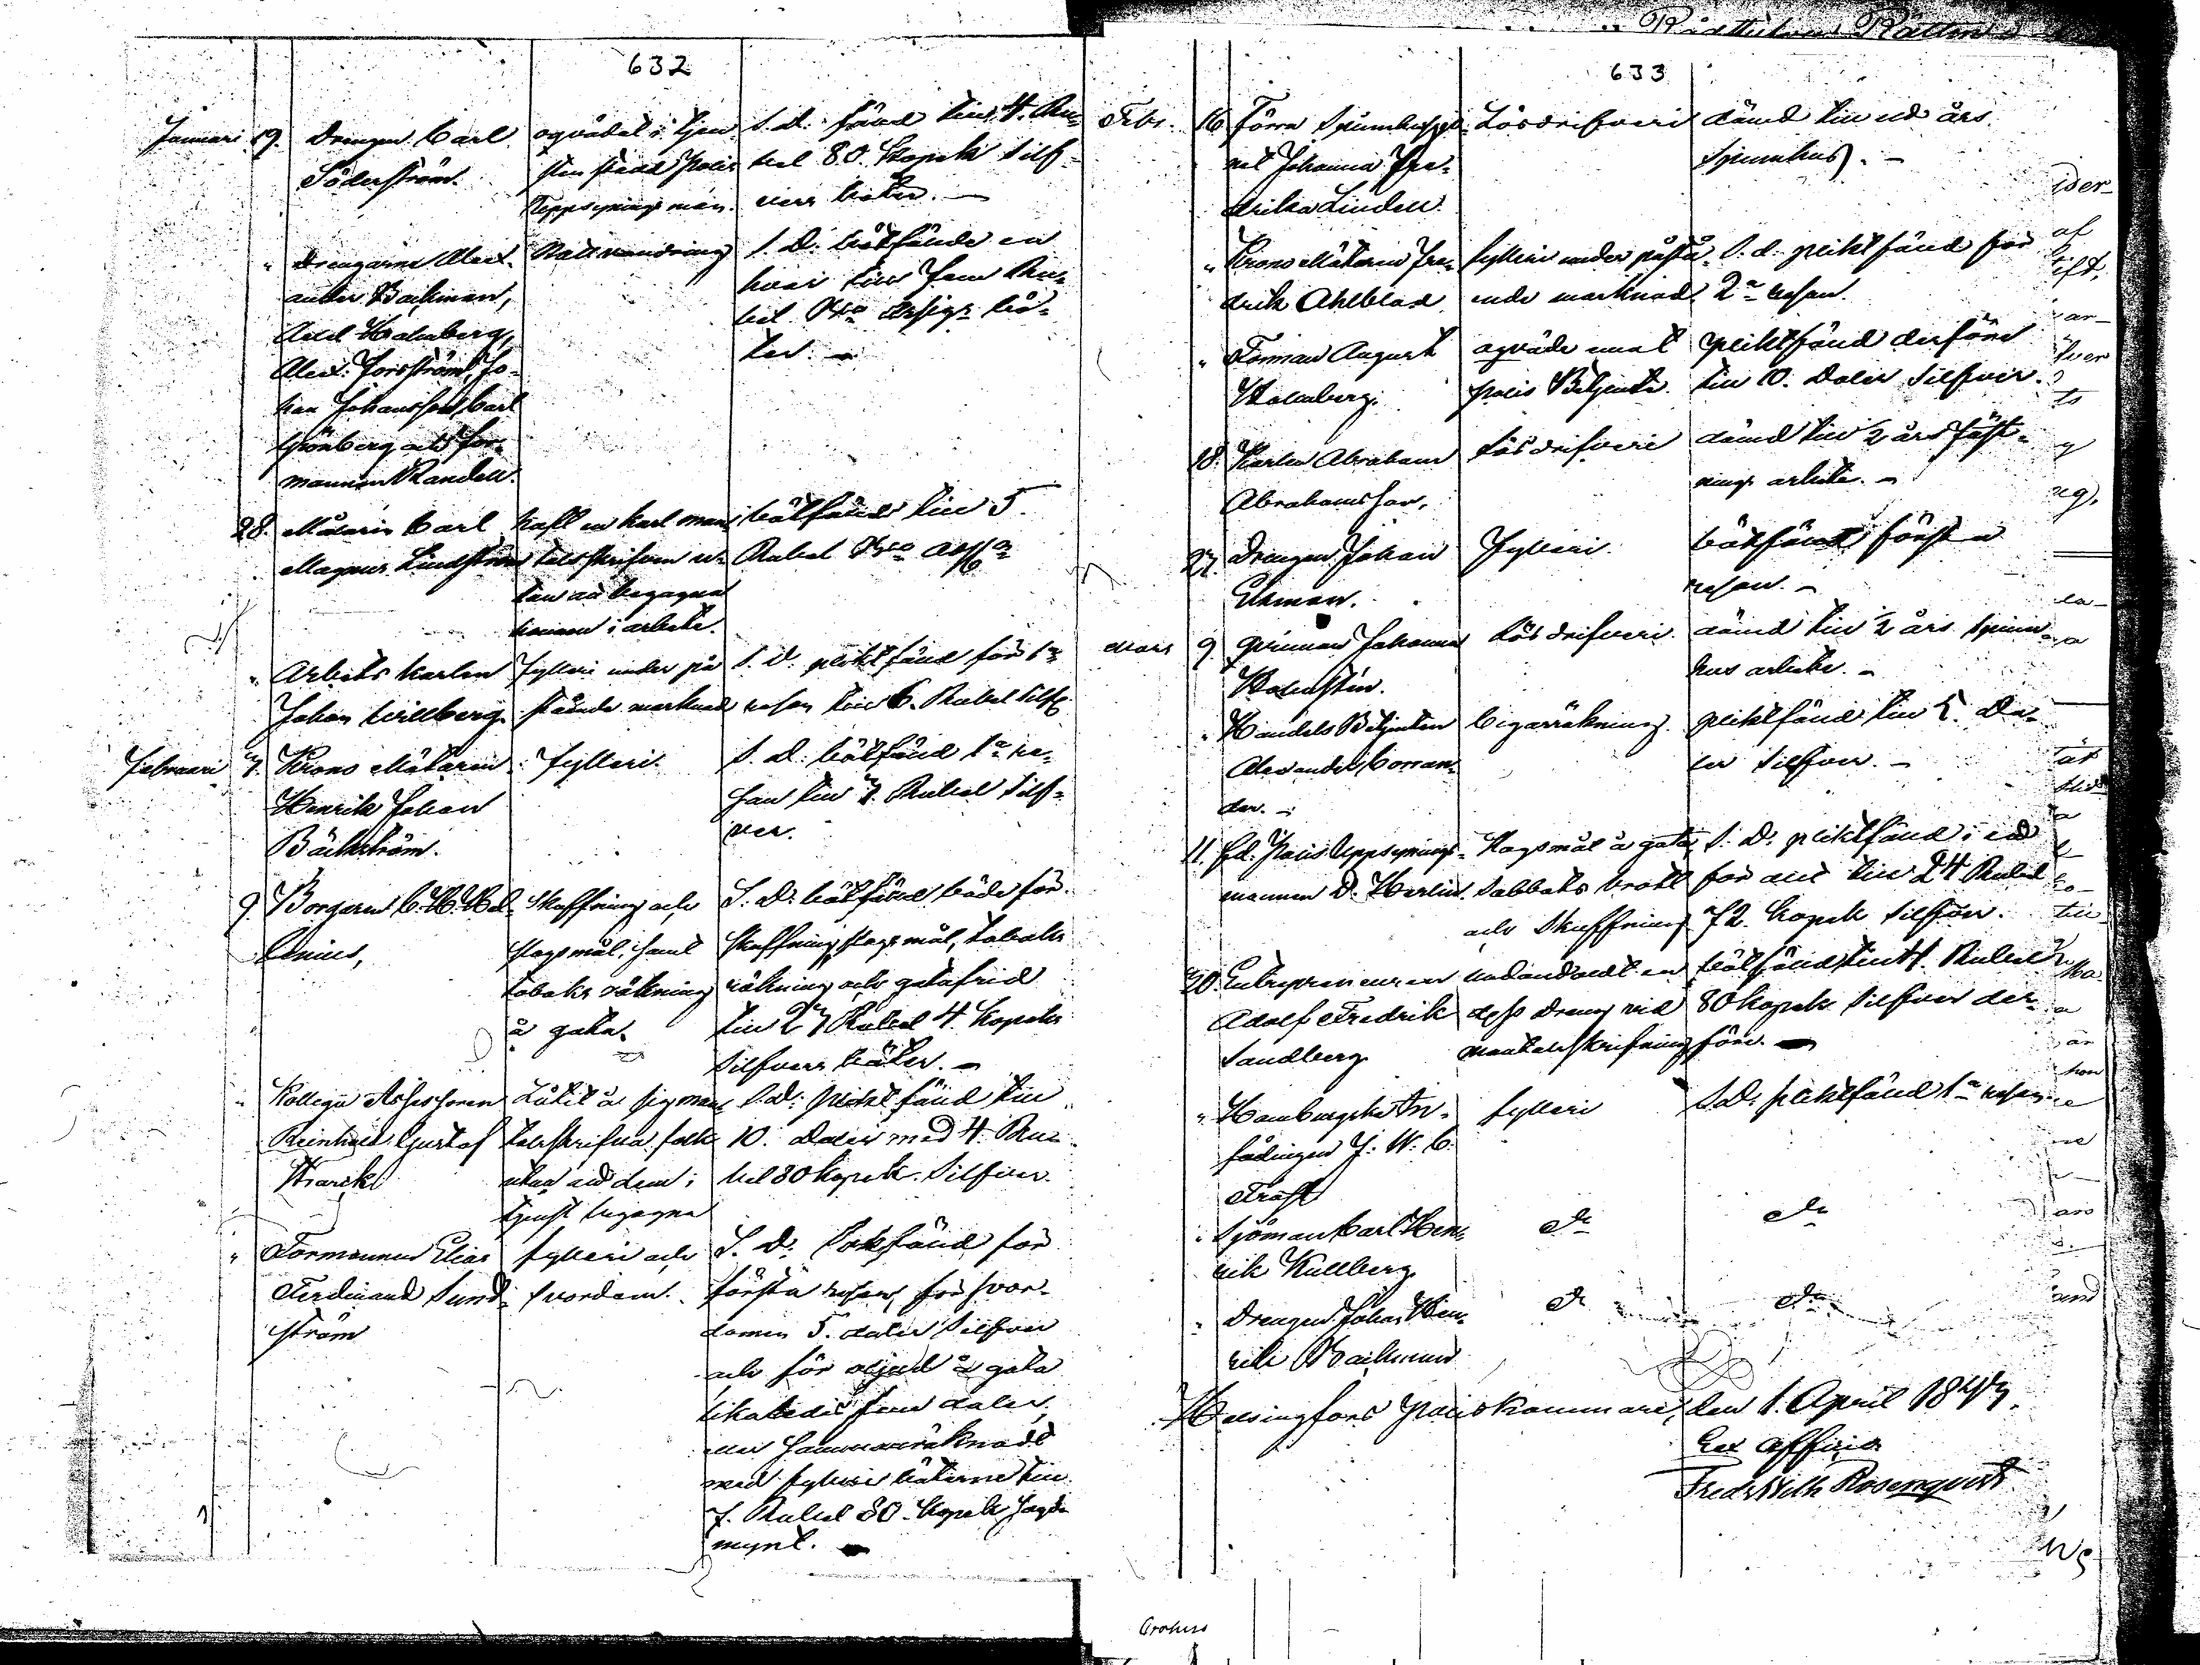 632
Januari 19. Drengen Carl
Söderström.
ogvädat i tjen-
sten stadd Polis
Uppsynings man.
S. D. fäld till 4. Ru-
bel 80. kopek silf-
vers böter. —
" Drengarne Alex-
ander Backman,
Axel Holmberg,
Alex: Forsström, Jo-
han Johansson, Carl
Grönberg och for-
mannen Randell.
Nattvandring
S. D. bötfälde en
hvar till fem Ru-
bel
bö-
ter. —
28. Målaren Carl
Magnus Lindström
haft en karl man-
talsskrifven u-
tan att begagna
honom i arbete.
bötfäld till 5.
Rubel
" Arbets karlen
Johan Willberg.
fylleri under på
stående marknad
S. D. pliktfäld för 1a
resan till 6. Rubel Silf.
Februari 7. Krono Mätaren
Henrik Johan
Bäckström.
fylleri.
S. D. bötfäld 1a re-
san till 7. Rubel silf-
ver.
9. Borgaren C. H. Hel-
enius,
Skuffning och
slagsmål, samt
tobaks rökning
å gata.
S. D. bötfäld både för
skuffning, slagsmål, tobaks
rökning och gatafrid
till 27 Rubel 4. kopek
Silfvers böter. —
" Kollegii Assessoren
Reinhold Gustaf
Låtit å sig man-
talsskrifva folk
utan att dem i
tjenst begagna
S. D. pliktfäld till
10. Daler med 4. Ru-
bel 80 kopek Silfver.
" Formannen Elias
Ferdinand Sund-
ström
fylleri och
svordom.
S. D. Sakfäld för
första resan, för svor-
domen 5. daler Silfver
och för oljud å gata
likaledes fem daler,
eller sammanräknadt
med fylleri böterne till
7. Rubel 80. kopek sagde
mynt. —
633
Febr. 16 Förra Spinnhushjo-
net Johanna Fre-
drika Lindell.
Lösdrifveri
dömd till ett års
Spinnhus. —
" Krono Mätaren Fre-
drik Ahlblad
fylleri under påstå-
ende marknad.
S. D. pliktfäld för
2a resan.
" Forman August
Holmberg.
ogväde emot
Polis Betjente.
pliktfäld derföre
till 10. Daler Silfver.
18. Karlen Abraham
Abrahamsson,
Lösdrifveri
dömd till 1/2 års fäst-
nings arbete. —
27. Drengen Johan
Ekman.
Fylleri.
bötfäld första
resan. —
Mars 9. Qvinnan Johanna
Holmstén.
Lösdrifveri.
dömd till 1/2 års spinn-
hus arbete. —
" Handels Betjenten
Alexander Corran-
der. —
Cigarrökning.
pliktfäld till 5. Da-
ler silfver. —
11. f.d. Polis Uppsynings-
mannen D. Herlin.
Slagsmål å gata,
Sabbats brott
och Skuffning
S. D. pliktfäld i ett
för allt till 24 Rubel
72. kopek silfver.
20. Entrepreneuren
Adolf Fredrik
Sandberg
undandöldt en
dess dreng vid
mantalsskrifning
bötfäld till 4. Rubel
80 kopek Silfver der-
före. —
" Hamburgska In-
födingen J. W. C.
Frost
fylleri
S. D. pliktfäld 1a resan
" Sjöman Carl Hen-
rik Kullberg
do
do
" Drengen Johan Hen-
rik Backman
do
do
Helsingfors Poliskammare, den 1. April 1847.
Ex officio
Fredr Wilh Rosenqvist